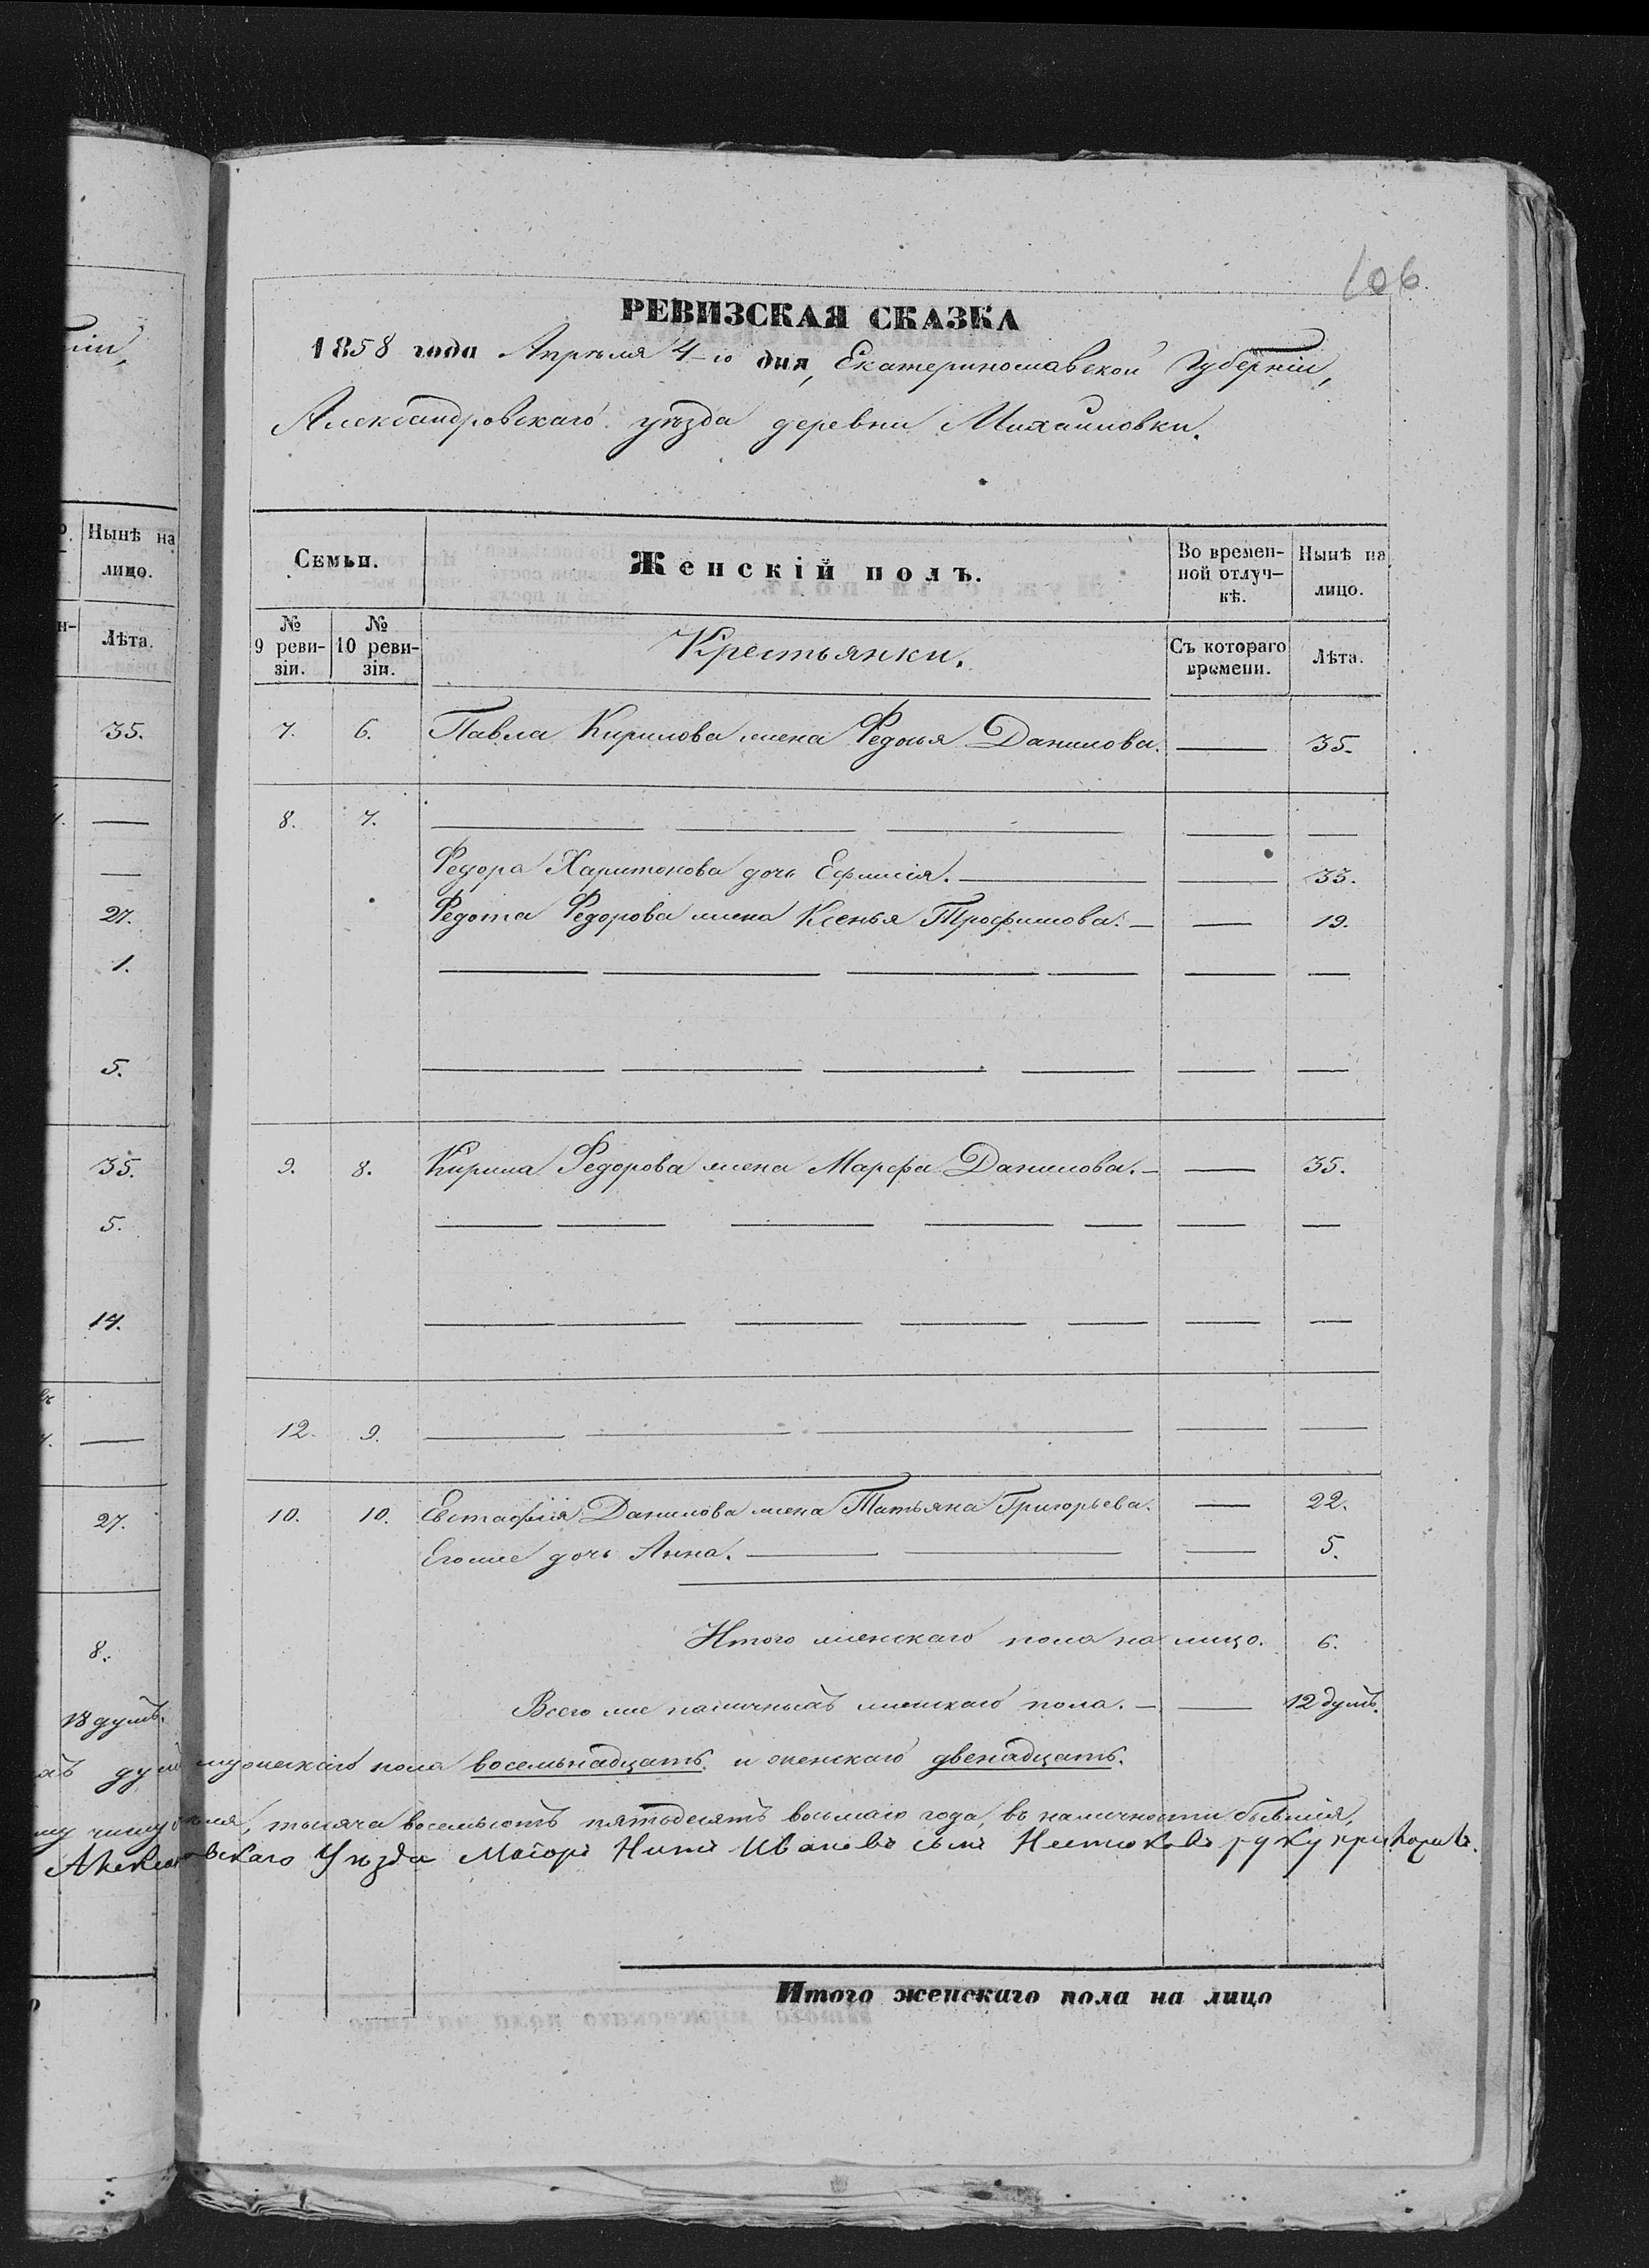 106
іи,
РЕВИЗСКАЯ СКАЗКА
1858 года Апрѣля 4-го дня, Екатеринославской Губерніи,
Александровскаго уѣзда деревни Михайловки.
Нынѣ на лицо.
Лѣта.
35.
27.
1.
5.
35.
5.
14.
27.
8.
18 душъ.
Семьи.
Женскій полъ.
Во времен-ной отлуч-кѣ.
Нынѣ на лицо.
№ 9 реви-зіи.
№ 10 реви-зіи.
Крестьянки.
Съ котораго времени.
Лѣта.
7. 6. Павла Кирилова жена Федосья Данилова. — 35.
8. 7. — — — — —
Федора Харитонова дочь Ефимія. — — 33.
Федота Федорова жена Ксенья Трофимова. — — 19.
— — — — — —
— — — — — —
9. 8. Кирила Федорова жена Марфа Данилова. — — 35.
— — — — — — —
— — — — — — —
12. 9. — — — — —
10. 10. Евстафія Данилова жена Татьяна Григорьева. — 22.
Егоже дочь Анна. — — — 5.
Итого женскаго пола на лицо. 6.
Всего же наличныхъ женскаго пола. — — 12 душъ.
душъ мужескаго пола восемьнадцать и женскаго двенадцать.
тысяча восемьсотъ пятьдесятъ восьмаго года, въ наличности бывшія,
Уѣзда Маіоръ Ивановъ сынъ руку приложилъ.
Итого женскаго пола на лицо